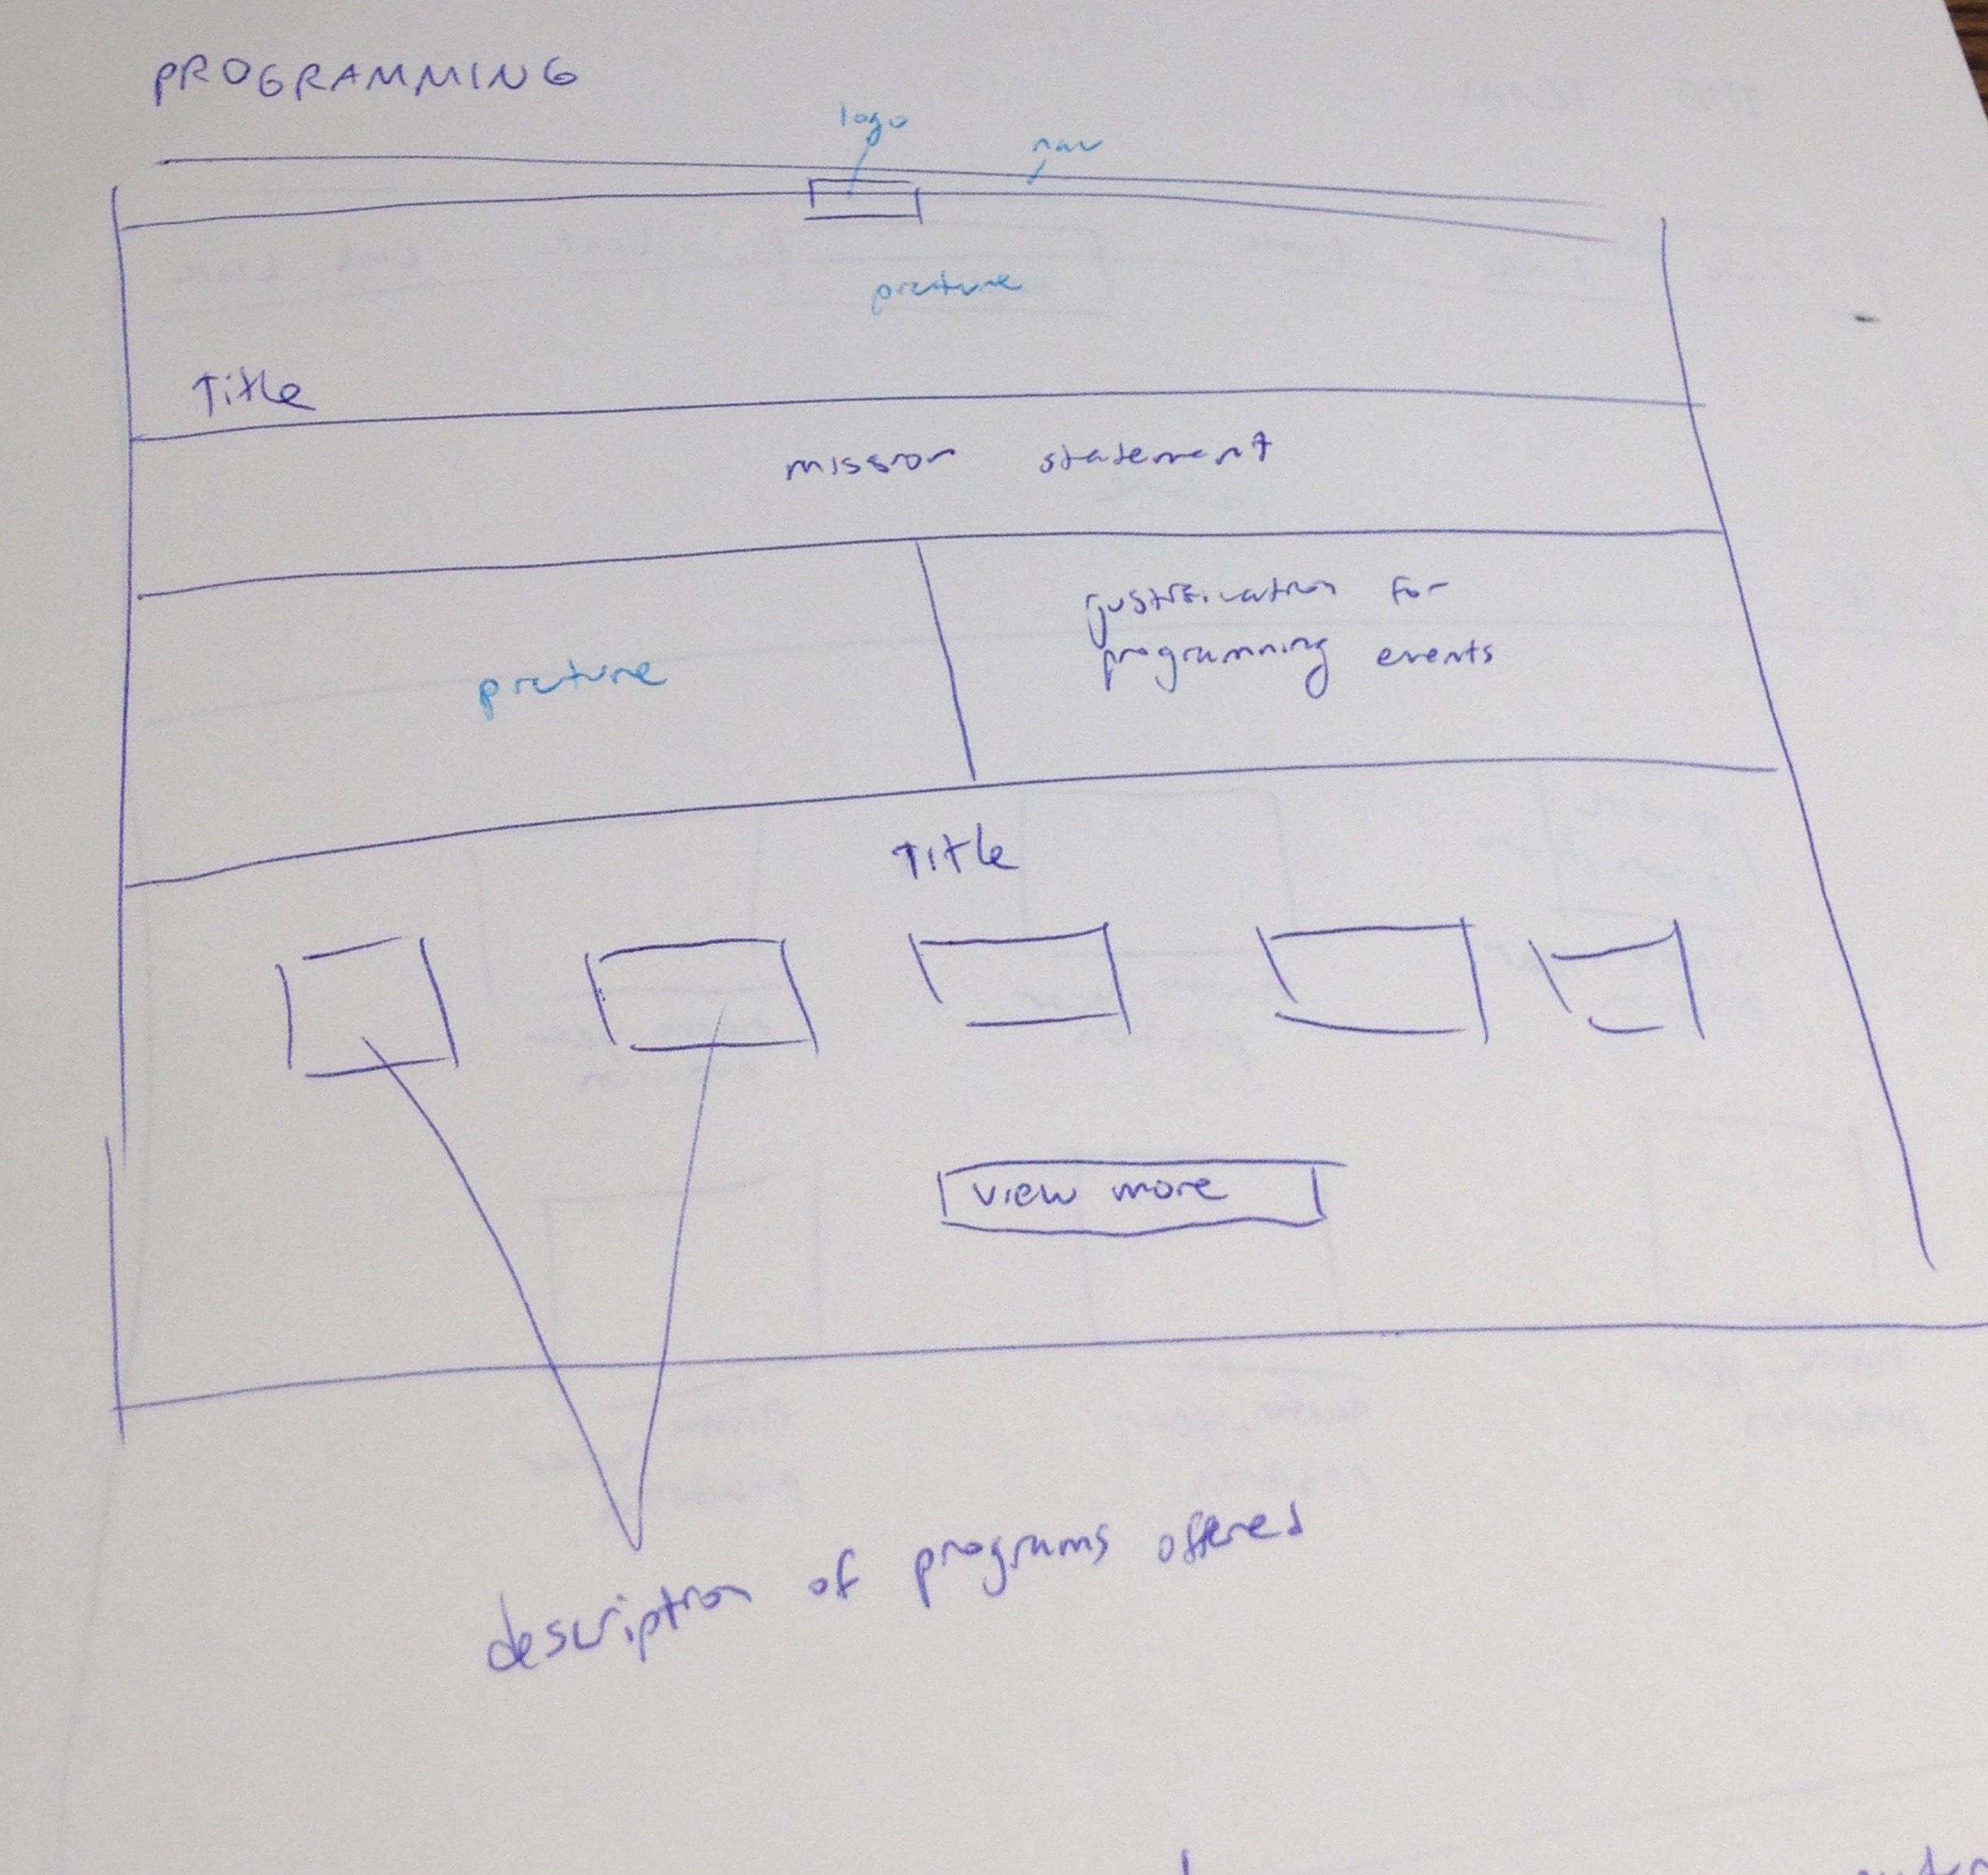 PROGRAMMING
logo
nav
picture
Title
mission statement
justification for
programming events
picture
Title
view more
description of programs offered